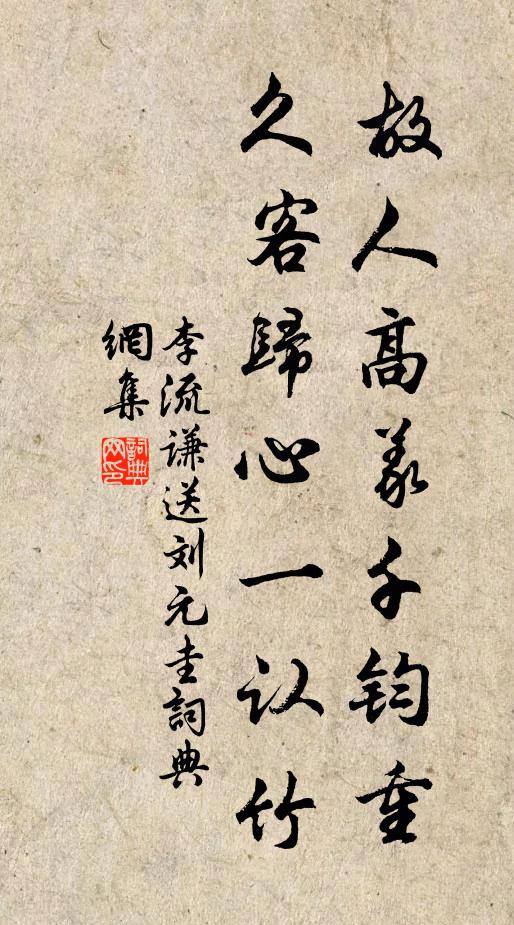 故人高義千钧重
久客歸心一认竹
李流谦送刘元圭詞典
網集
詞典网印